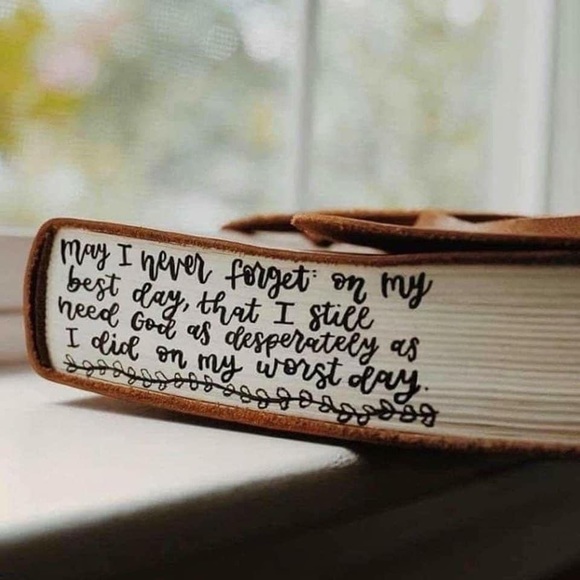 May I never forget: on my
best day, that I still
need God as desperately as
I did on my worst day.